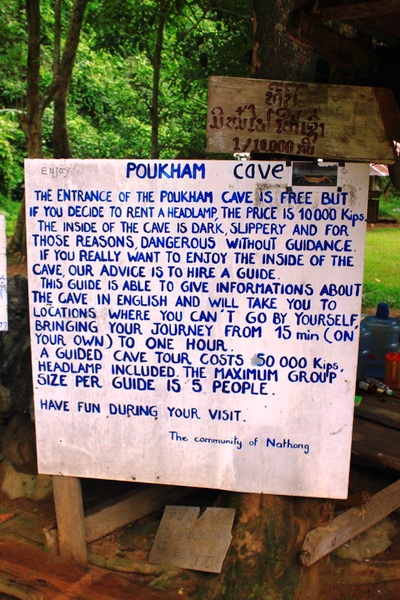 ທີ່ນີ້
ມີໝໍ້ໄຟໃຫ້ເຊົ່າ
1/10,000 ກີບ
Enjoy
POUKHAM cave
THE ENTRANCE OF THE POUKHAM CAVE IS FREE BUT
IF YOU DECIDE TO RENT A HEADLAMP, THE PRICE IS 10000 Kips.
THE INSIDE OF THE CAVE IS DARK, SLIPPERY AND FOR
THOSE REASONS, DANGEROUS WITHOUT GUIDANCE.
IF YOU REALLY WANT TO ENJOY THE INSIDE OF THE
CAVE, OUR ADVICE IS TO HIRE A GUIDE.
THIS GUIDE IS ABLE TO GIVE INFORMATIONS ABOUT
THE CAVE IN ENGLISH AND WILL TAKE YOU TO
LOCATIONS WHERE YOU CAN'T GO BY YOURSELF,
BRINGING YOUR JOURNEY FROM 15 min (ON
YOUR OWN) TO ONE HOUR.
A GUIDED CAVE TOUR COSTS 50 000 Kips,
HEADLAMP INCLUDED. THE MAXIMUM GROUP
SIZE PER GUIDE IS 5 PEOPLE.
HAVE FUN DURING YOUR VISIT.
The community of Nathong